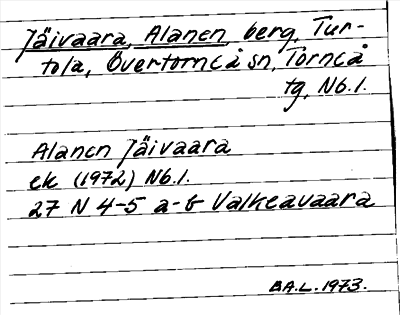 Jäivaara, Alanen, berg, Tur-
tola, Övertorneå sn, Torneå
tg, Nb. l.
Alanen Jäivaara
ek (1972) Nb. l.
27 N 4-5 a-b Valkeavaara
B A. L. 1973.